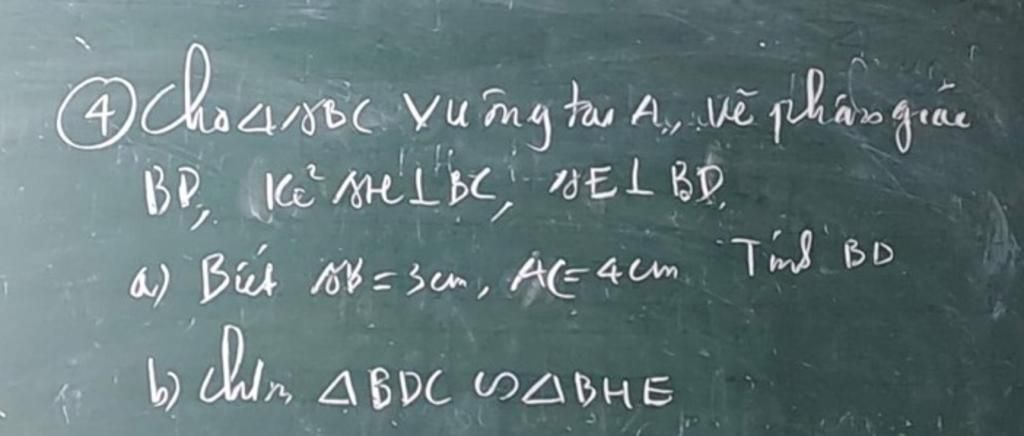 ④ Cho △ABC vuông tại A, vẽ phân giác
BD, Kẻ AH⊥BC, AE⊥BD.
a) Biết AB=3cm, AC=4cm Tính BD
b) Ch/m △BDC ∽ △BHE